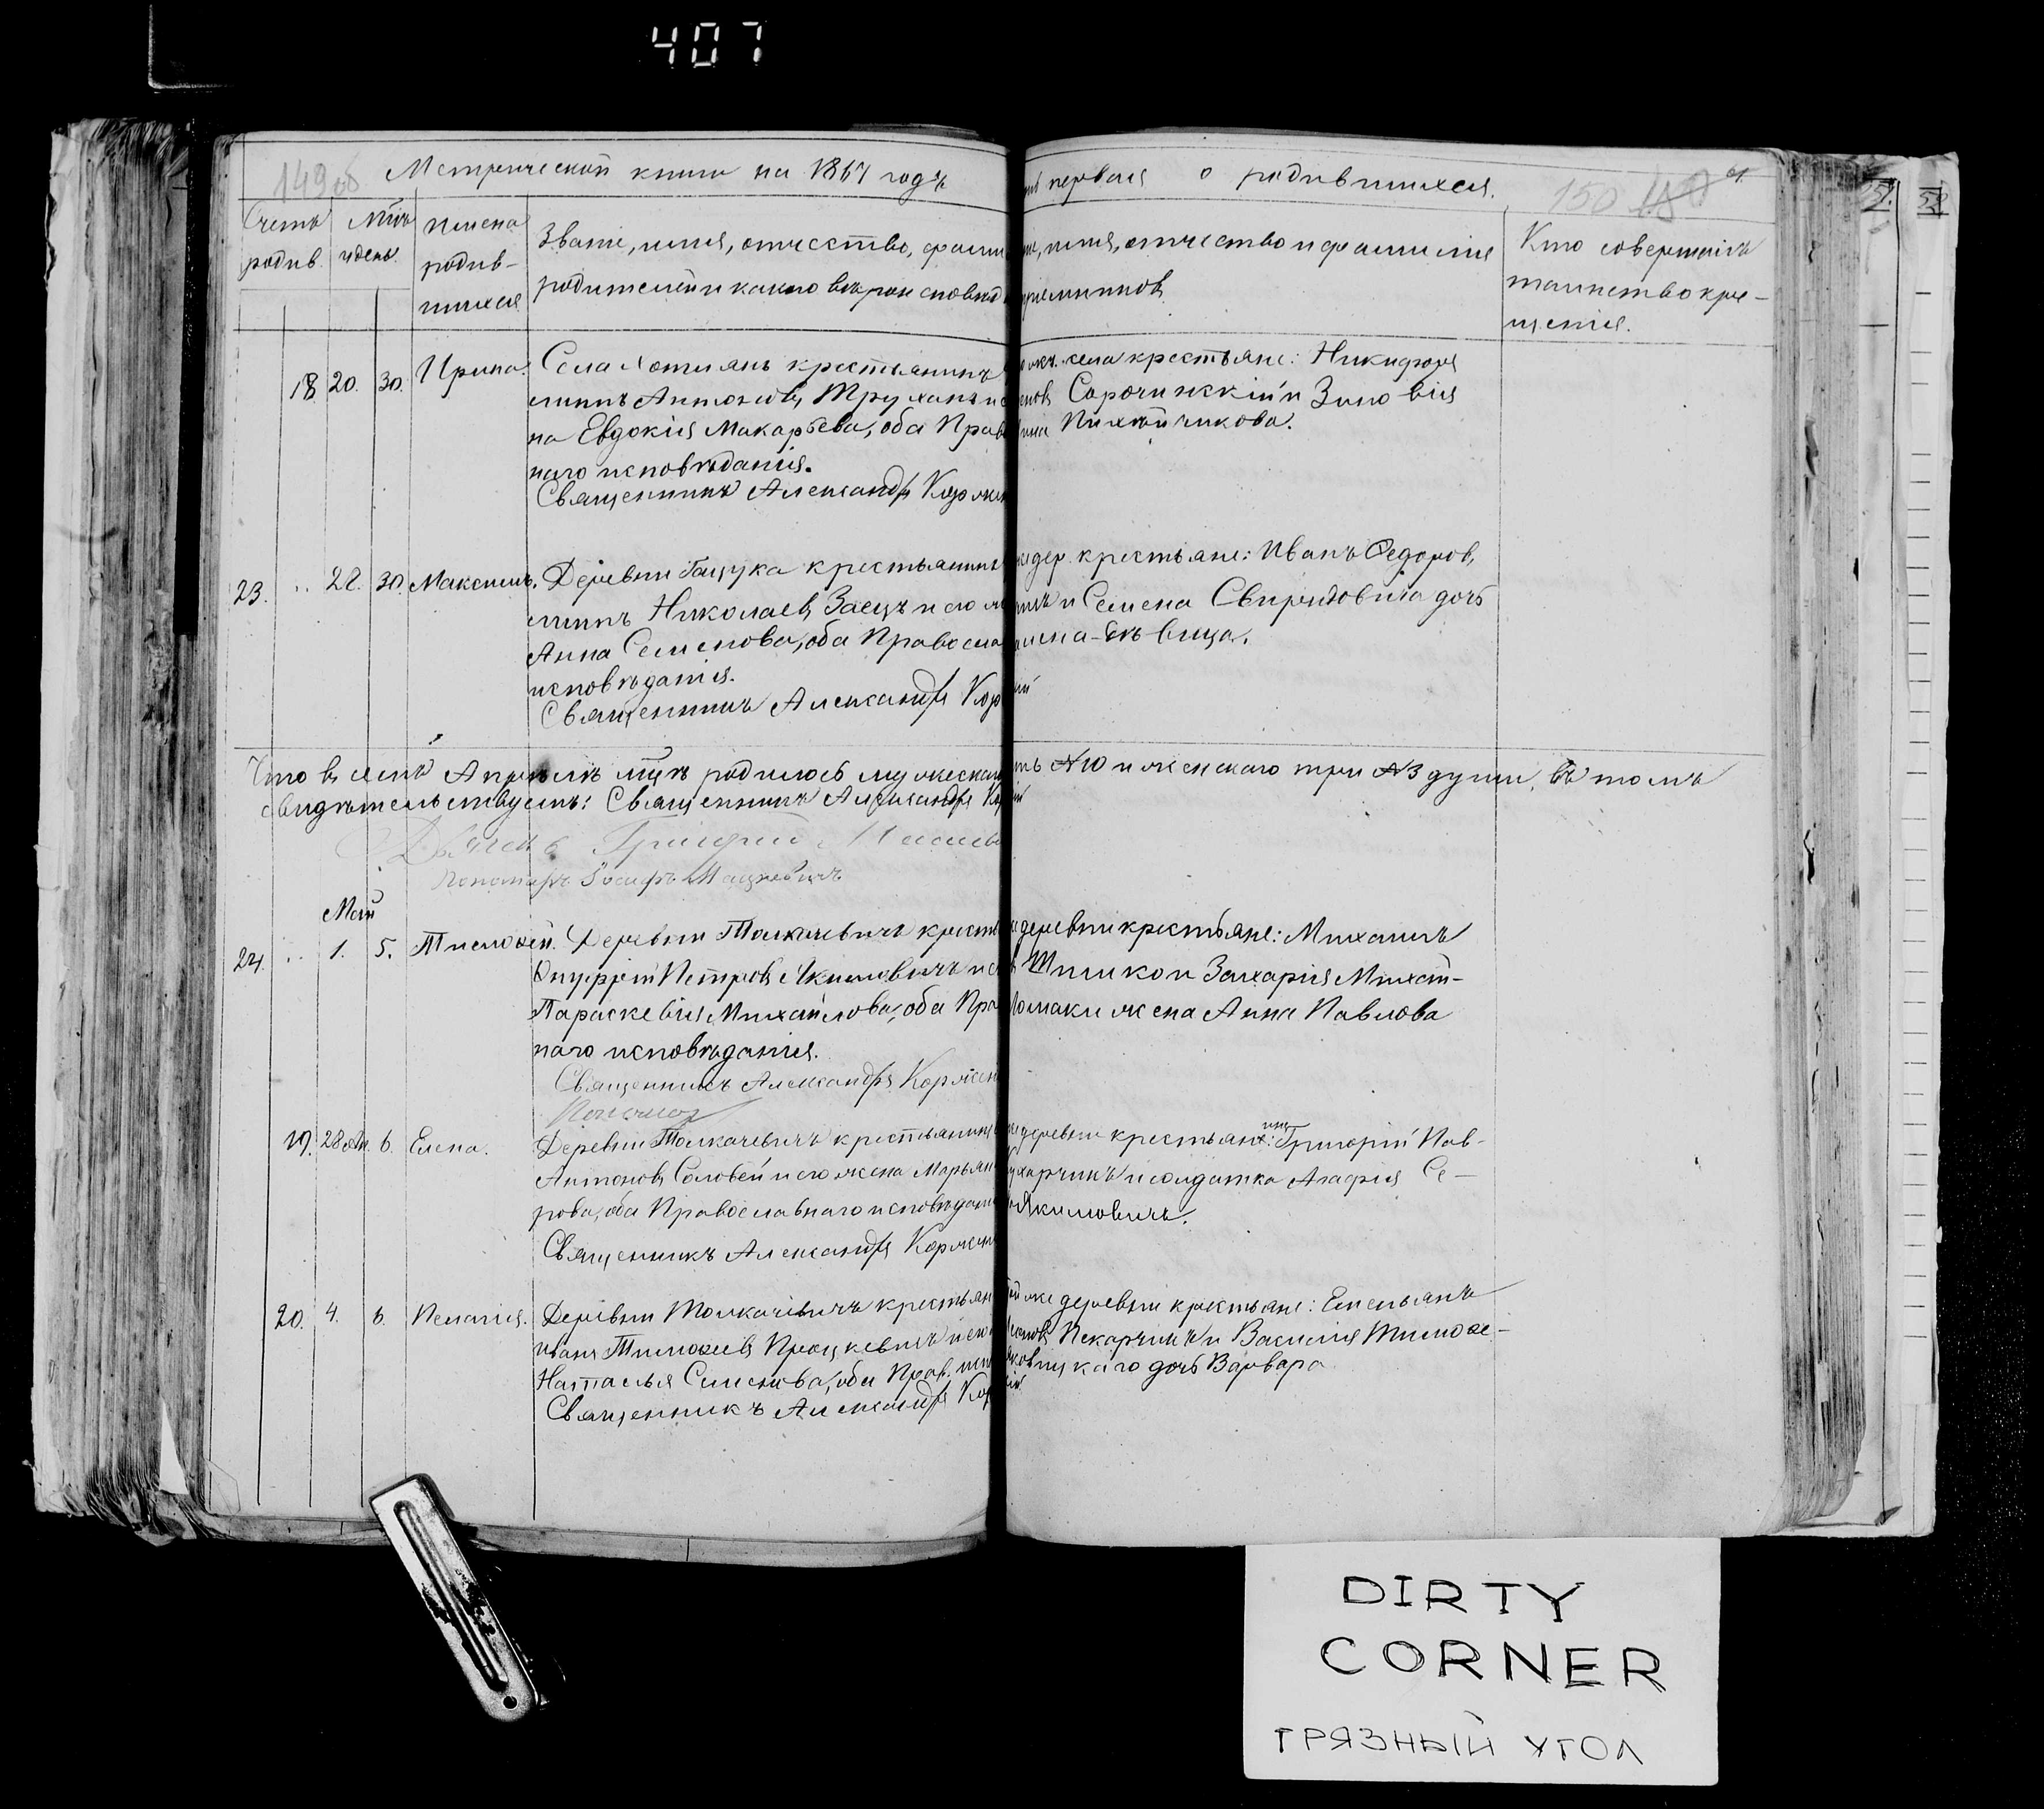 407
149 об Метрической книги на 1867 годъ
первая о родившихся.
150
Счетъ родив.
Мцъ и день.
Имена родив-
шихся
Званіе, имя, отчество, фами
родителей и какого вѣроисповѣд
имя, отчество и фамилія
Кто совершилъ
таинство кре-
щенія.
18. 20. 30. Ирина. Села Хотилянъ крестьянинъ
Антоновъ Труханъ и
на Евдокія Макарьева, оба Прав
наго исповѣданія.
Священникъ Александръ Корже
села крестьяне: Никифоръ
Сорочинскій и Зиновія
23. .. 22. 30. Максимъ. Деревни крестьянинъ
Николаевъ Заецъ и его
Анна Семенова, оба Правосла
исповѣданія.
Священникъ Александръ Кор
дер. крестьяне: Иванъ Федоров,
и Семена Свиридовича дочь
дѣвица.
Что въ семъ Апрѣлѣ мцѣ родилось мужескаго
№10 и женскаго три №3 души, въ томъ
свидѣтельствуемъ: Священникъ Александръ Ко
Дьячекъ Григорій
Пономарь Іосифъ Мацкевичъ
Май
24. .. 1. 5. Тимофей. Деревни Толкачевичъ кресть
Онуфрій Петровъ Якимовичъ и
Параскевія Михайлова, оба Пра
наго исповѣданія.
Священникъ Александръ Коржен
Пономар
деревни крестьяне: Михаилъ
Шишко и Захарія Михай-
жена Анна Павлова
19. 28 Ап. 6. Елена. Деревни Толкачевичъ крестьянинъ
Антоновъ Соловей и его жена Марьян
рова, оба Православнаго исповѣдан
Священникъ Александръ Коржен
деревни крестьянинъ: Григорій Пав-
и солдатка Агафія Се-
Якимовичъ.
20. 4. 6. Пелагія. Деревни Толкачевичъ крестьян
Иванъ Тимофеевъ Процкевичъ и его
Наталья Семенова, оба Прав. исп
Священникъ Александръ Кор
же деревни крестьяне: Емельянъ
Пекарчикъ и Василія Тимофе-
дочь Варвара
DIRTY
CORNER
ГРЯЗНЫЙ УГОЛ